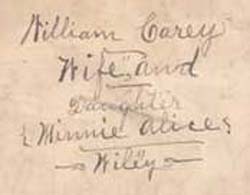 William Carey
Wife and
Daughter
& Minnie Alice
Wiley